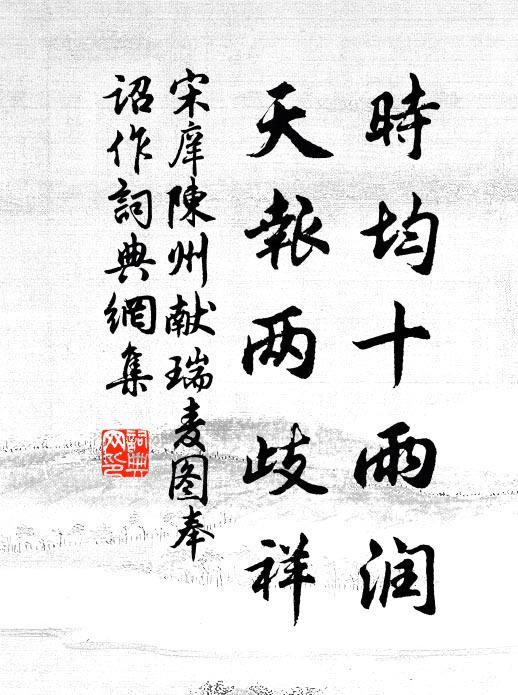 時均十雨润
天報两歧祥
宋庠陳州献瑞麦图奉
詔作詞典網集
詞典
网印